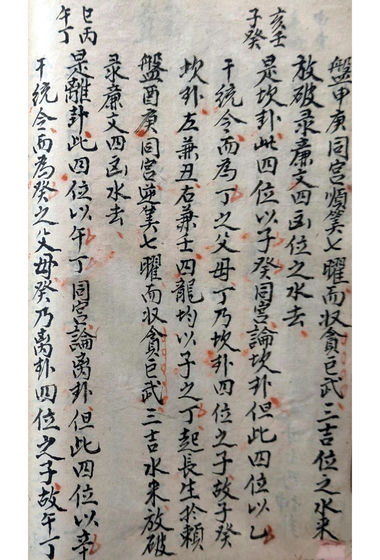 盤甲庚同宮順筭七曜而収貪巨武三吉位之水來
放破录廉文四凶位之水去
亥壬
子癸
是坎卦此四位以子癸同宮論坎卦但此四位以乙
干統令而為丁之父母丁乃坎卦四位之子故子癸
坎卦左兼丑右兼壬四龍均以子之丁起長生於賴
盤酉庚同宮逆筭七曜而収貪巨武三吉水來放破
录廉文四凶水去
巳丙
午丁
是離卦此四位以午丁同宮論离卦但此四位以辛
干統令而為癸之父母癸乃离卦四位之子故午丁